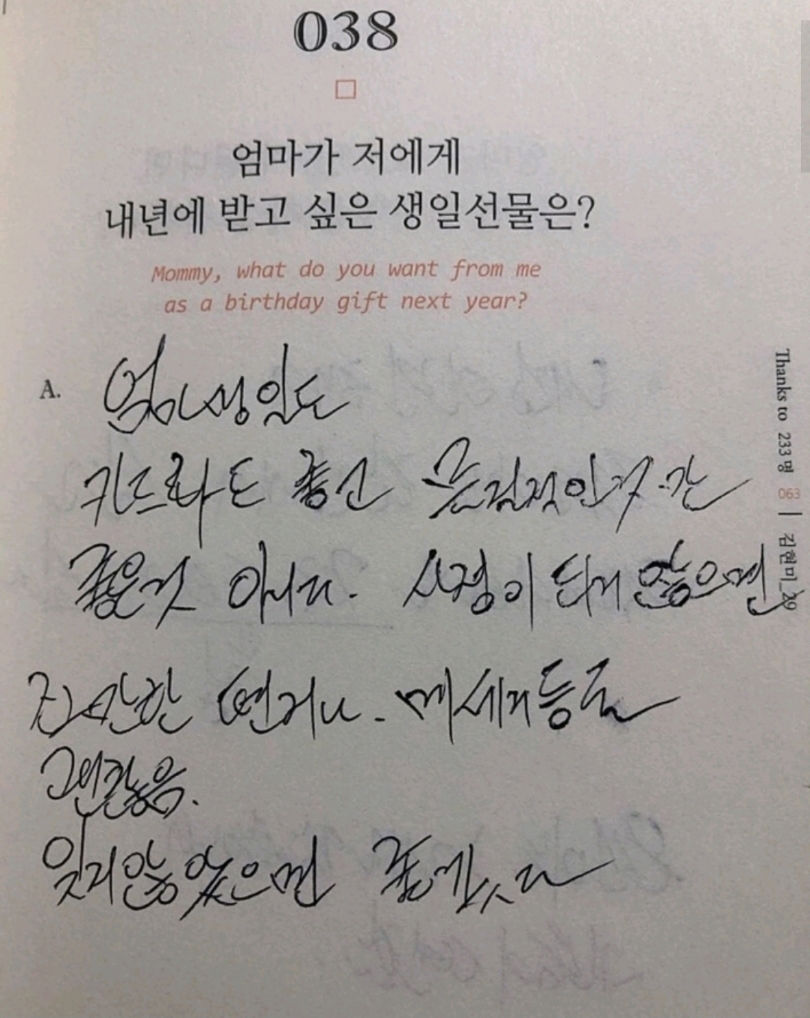 038
엄마가 저에게
내년에 받고 싶은 생일선물은?
Mommy, what do you want from me
as a birthday gift next year?
A. 엄마생일도
카드라도 좋고 물질적인거만
좋은것 아니다. 사정이 되지 않으면
간단한 편지나. 메세지등도
괜찮음.
잊지않았으면 좋겠다
Thanks to 233명 063 | 김현미_29